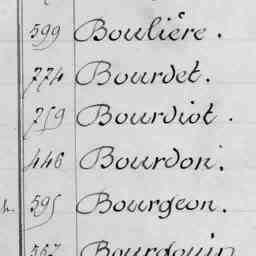 599 Boulière.
774 Bourdet.
759 Bourdiot.
446 Bourdon.
595 Bourgeon.
567 Bourgouin